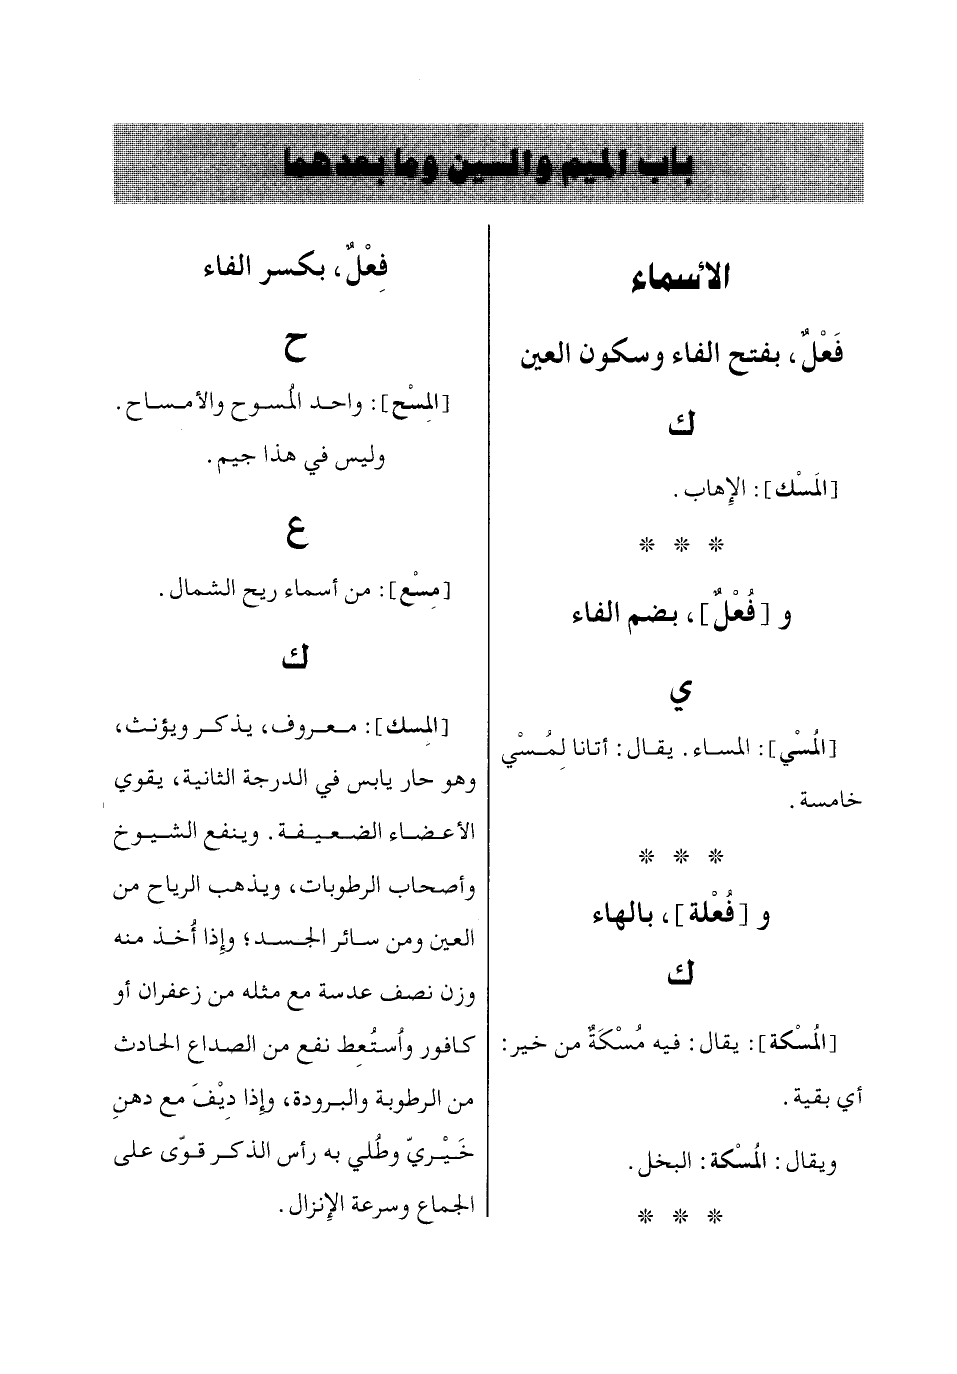 باب الميم والسين وما بعدهما
الأسماء
فَعْلٌ، بفتح الفاء وسكون العين
ك
[المَسْك]: الإهاب.
* * *
و [فُعْلٌ]، بضم الفاء
ي
[المُسْي]: المساء. يقال: أتانا لِمُسْي
خامسة.
* * *
و [فُعْلة]، بالهاء
ك
[المُسْكة]: يقال: فيه مُسْكَةٌ من خير:
أي بقية.
ويقال: المُسْكة: البخل.
* * *
فِعْلٌ، بكسر الفاء
ح
[المِسْح]: واحد المُسوح والأمساح.
وليس في هذا جيم.
ع
[مِسْع]: من أسماء ريح الشمال.
ك
[المِسك]: معروف، يذكر ويؤنث،
وهو حار يابس في الدرجة الثانية، يقوي
الأعضاء الضعيفة. وينفع الشيوخ
وأصحاب الرطوبات، ويذهب الرياح من
العين ومن سائر الجسد؛ وإذا أُخذ منه
وزن نصف عدسة مع مثله من زعفران أو
كافور وأُستُعِط نفع من الصداع الحادث
من الرطوبة والبرودة، وإذا دِيْفَ مع دهنِ
خَيْريّ وطُلي به رأس الذكر قوّى على
الجماع وسرعة الإنزال.